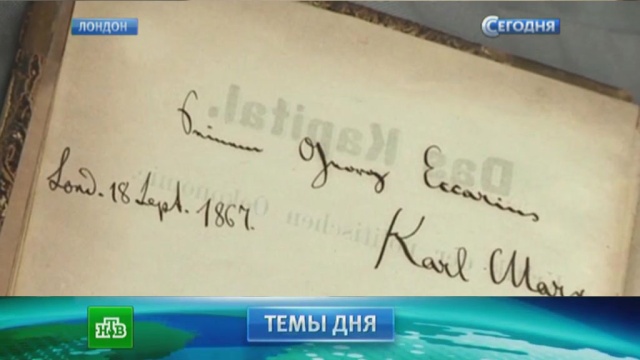 ЛОНДОН
СЕГОДНЯ
Das Kapital.
Seinem Georg Eccarius
Lond. 18 Sept. 1867.
politischen Oekonomie
Karl Marx
НТВ
ТЕМЫ ДНЯ